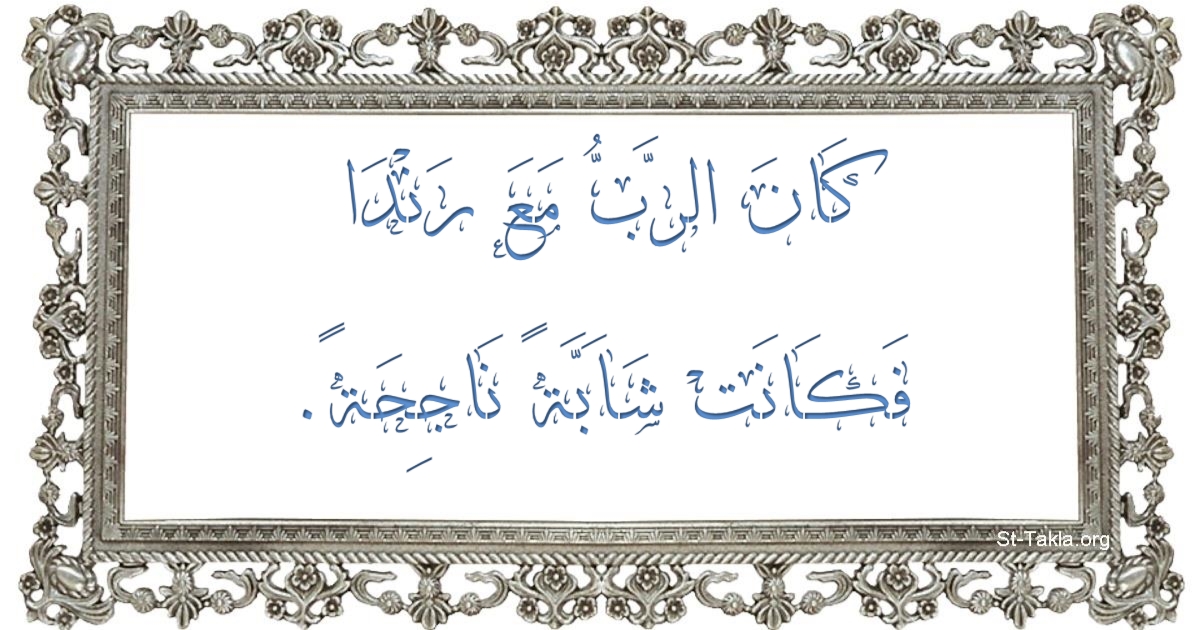 كَانَ الرَّبُّ مَعَ رَنْدَا
فَكَانَت شَابَّةً نَاجِحَةً.
St-Takla.org